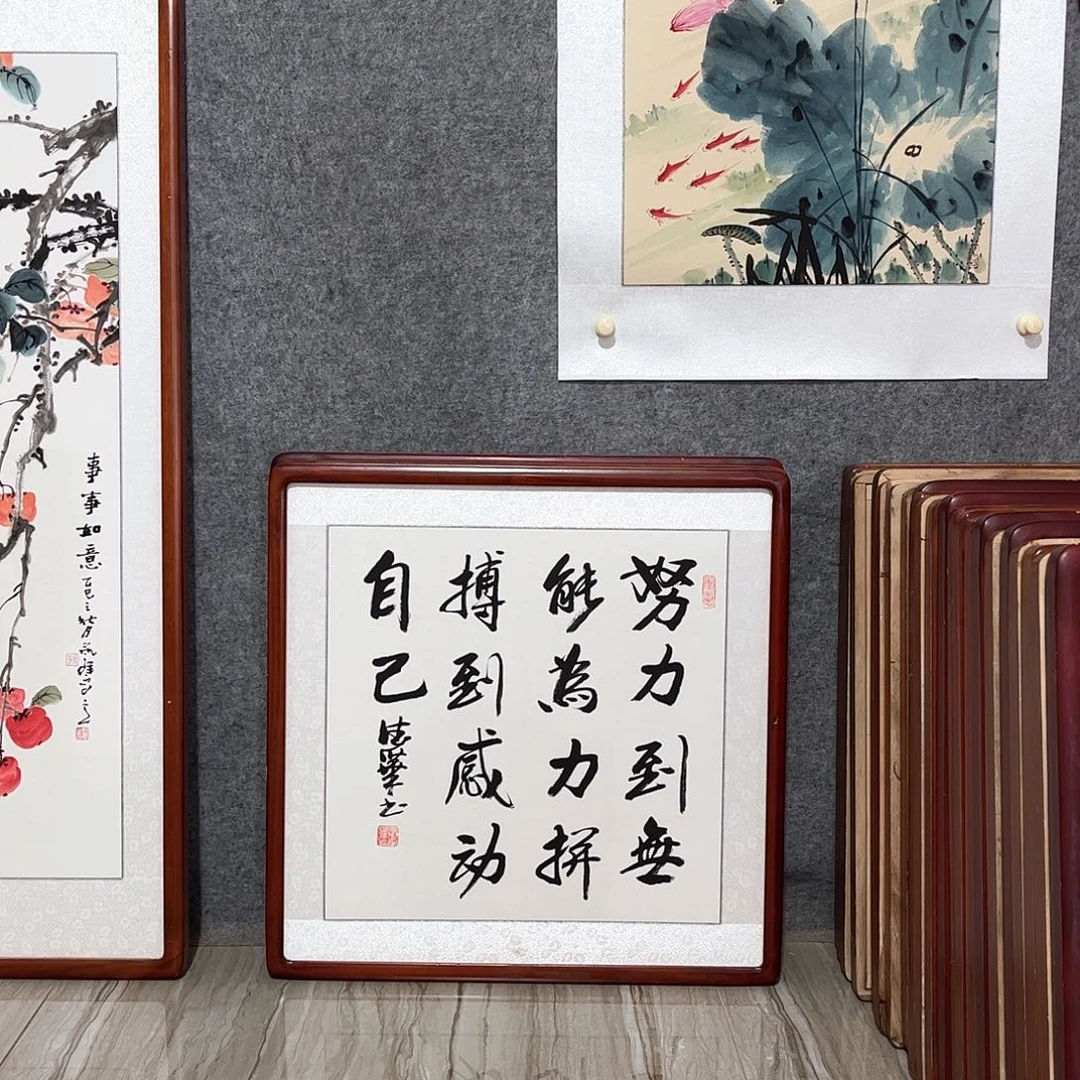 努力到無
能為力拼
搏到感动
自己
德華书
事事如意